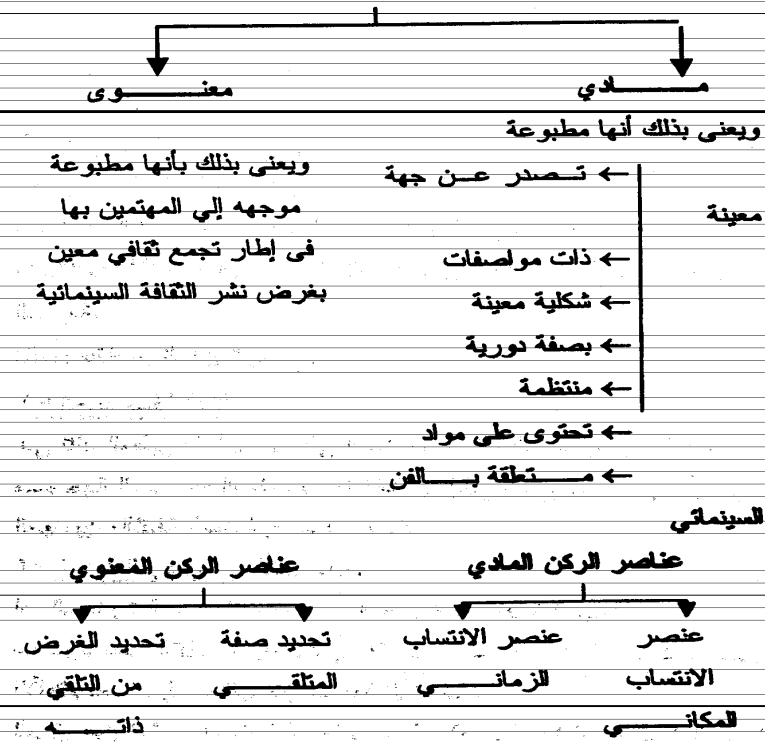 مــــــــادي
معنـــــــــوى
ويعنى بذلك أنها مطبوعة
← تــصدر عــن جهة
معينة
← ذات مواصفات
← شكلية معينة
← بصفة دورية
← منتظمة
← تحتوى على مواد
← مـــــتعلقة بـــــالفن
السينمائي
ويعنى بذلك بأنها مطبوعة
موجهه إلي المهتمين بها
فى إطار تجمع ثقافي معين
بغرض نشر الثقافة السينمائية
عناصر الركن المادي
عنصر
الانتساب
المكانــــــي
عنصر الانتساب
الزمانــــــــي
عناصر الركن المعنوي
تحديد صفة
المتلقـــــــي
تحديد الغرض
من التلقي
ذاتــــــــه